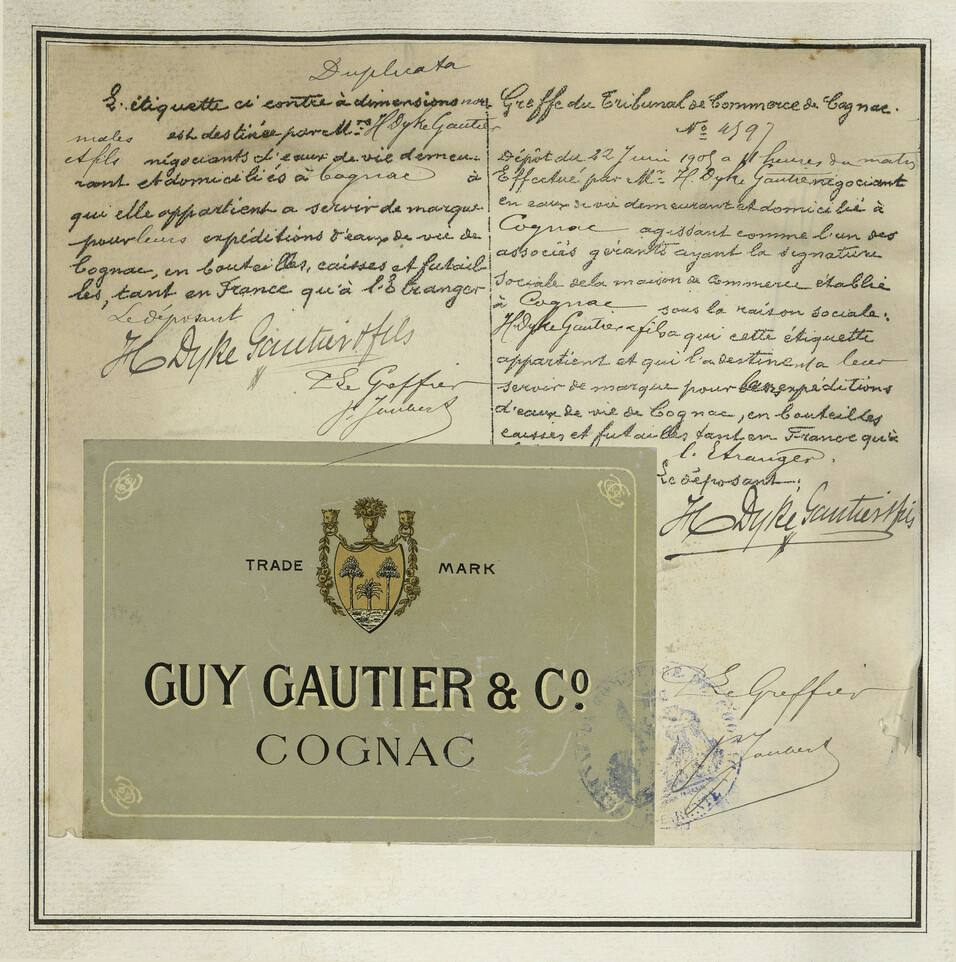 Duplicata
L'étiquette ci contre à dimensions nor-
males est destinée par Mrs H Dyke Gautier
et fils négociants d'eaux de vie demeu-
rant et domiciliés à Cognac à
qui elle appartient a servir de marque
pour leurs expéditions d'eaux de vie de
Cognac, en bouteilles, caisses et futail-
les, tant en France qu'à l'Etranger
Le déposant
H Dyke Gautier & fils
Le Greffier
Jh Joubert
Greffe du Tribunal de Commerce de Cognac.
No 4597
Dépôt du 22 Juin 1905 à 11 heures du matin
Effectué par Mr. H. Dyke Gautier négociant
en eaux de vie demeurant et domicilié à
Cognac agissant comme l'un des
associés gérants ayant la signature
sociale de la maison de commerce établie
à Cognac sous la raison sociale:
H. Dyke Gautier & fils a qui cette étiquette
appartient et qui la destine a leur
servir de marque pour les expéditions
d'eaux de vie de Cognac, en bouteilles
caisses et futailles tant en France qu'à
l'Etranger.
Le déposant:
H Dyke Gautier & fils
Le Greffier
Jh Joubert
TRADE MARK
GUY GAUTIER & Co
COGNAC